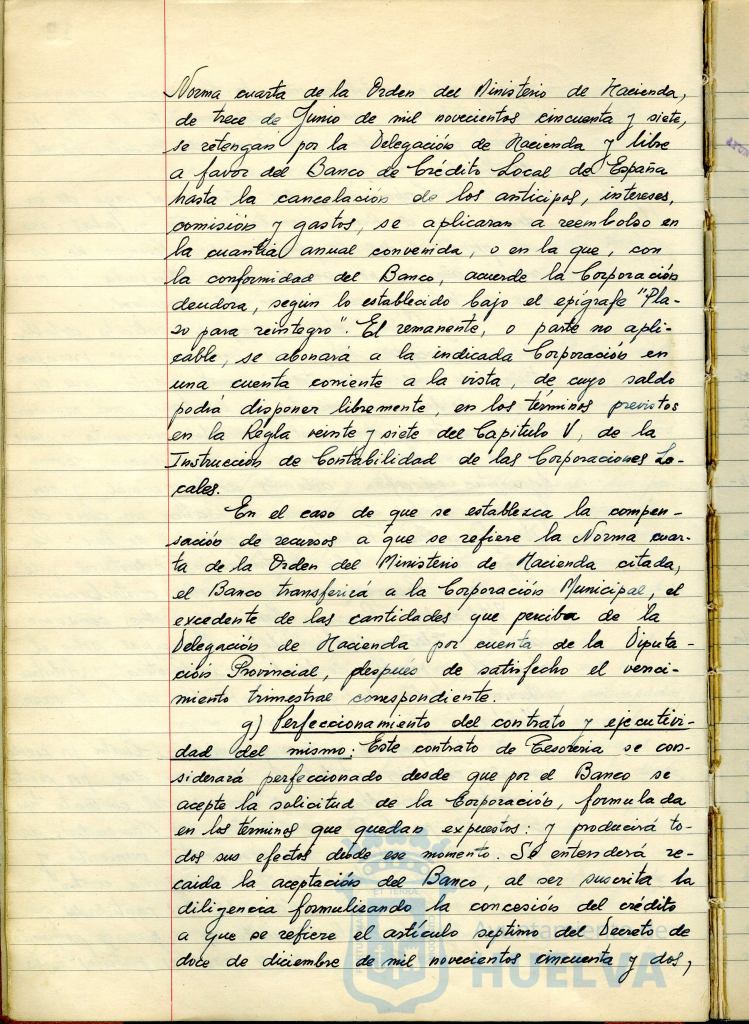 Norma cuarta de la Orden del Ministerio de Hacienda,
de trece de Junio de mil novecientos cincuenta y siete,
se retengan por la Delegación de Hacienda y libre
a favor del Banco de Crédito Local de España
hasta la cancelación de los anticipos, intereses,
comisión y gastos, se aplicaran a reembolso en
la cuantia anual convenida, o en la que, con
la conformidad del Banco, acuerde la Corporación
deudora, según lo establecido bajo el epígrafe "Pla-
zo para reintegro". El remanente, o parte no apli-
cable, se abonará a la indicada Corporación en
una cuenta corriente a la vista, de cuyo saldo
podrá disponer libremente, en los términos previstos
en la Regla veinte y siete del Capitulo V, de la
Instrucción de Contabilidad de las Corporaciones Lo-
cales.
En el caso de que se establezca la compen-
sación de recursos a que se refiere la Norma cuar-
ta de la Orden del Ministerio de Hacienda citada,
el Banco transferirá a la Corporación Municipal, el
excedente de las cantidades que perciba de la
Delegación de Hacienda por cuenta de la Diputa-
ción Provincial, después de satisfecho el venci-
miento trimestral correspondiente.
g) Perfeccionamiento del contrato y ejecutivi-
dad del mismo: Este contrato de Tesoreria se con-
siderará perfeccionado desde que por el Banco se
acepte la solicitud de la Corporación, formulada
en los términos que quedan expuestos: y producirá to-
dos sus efectos desde ese momento. Se entenderá re-
caida la aceptación del Banco, al ser suscrita la
diligencia formulizando la concesión del crédito
a que se refiere el artículo septimo del Decreto de
doce de diciembre de mil novecientos cincuenta y dos,
HUELVA